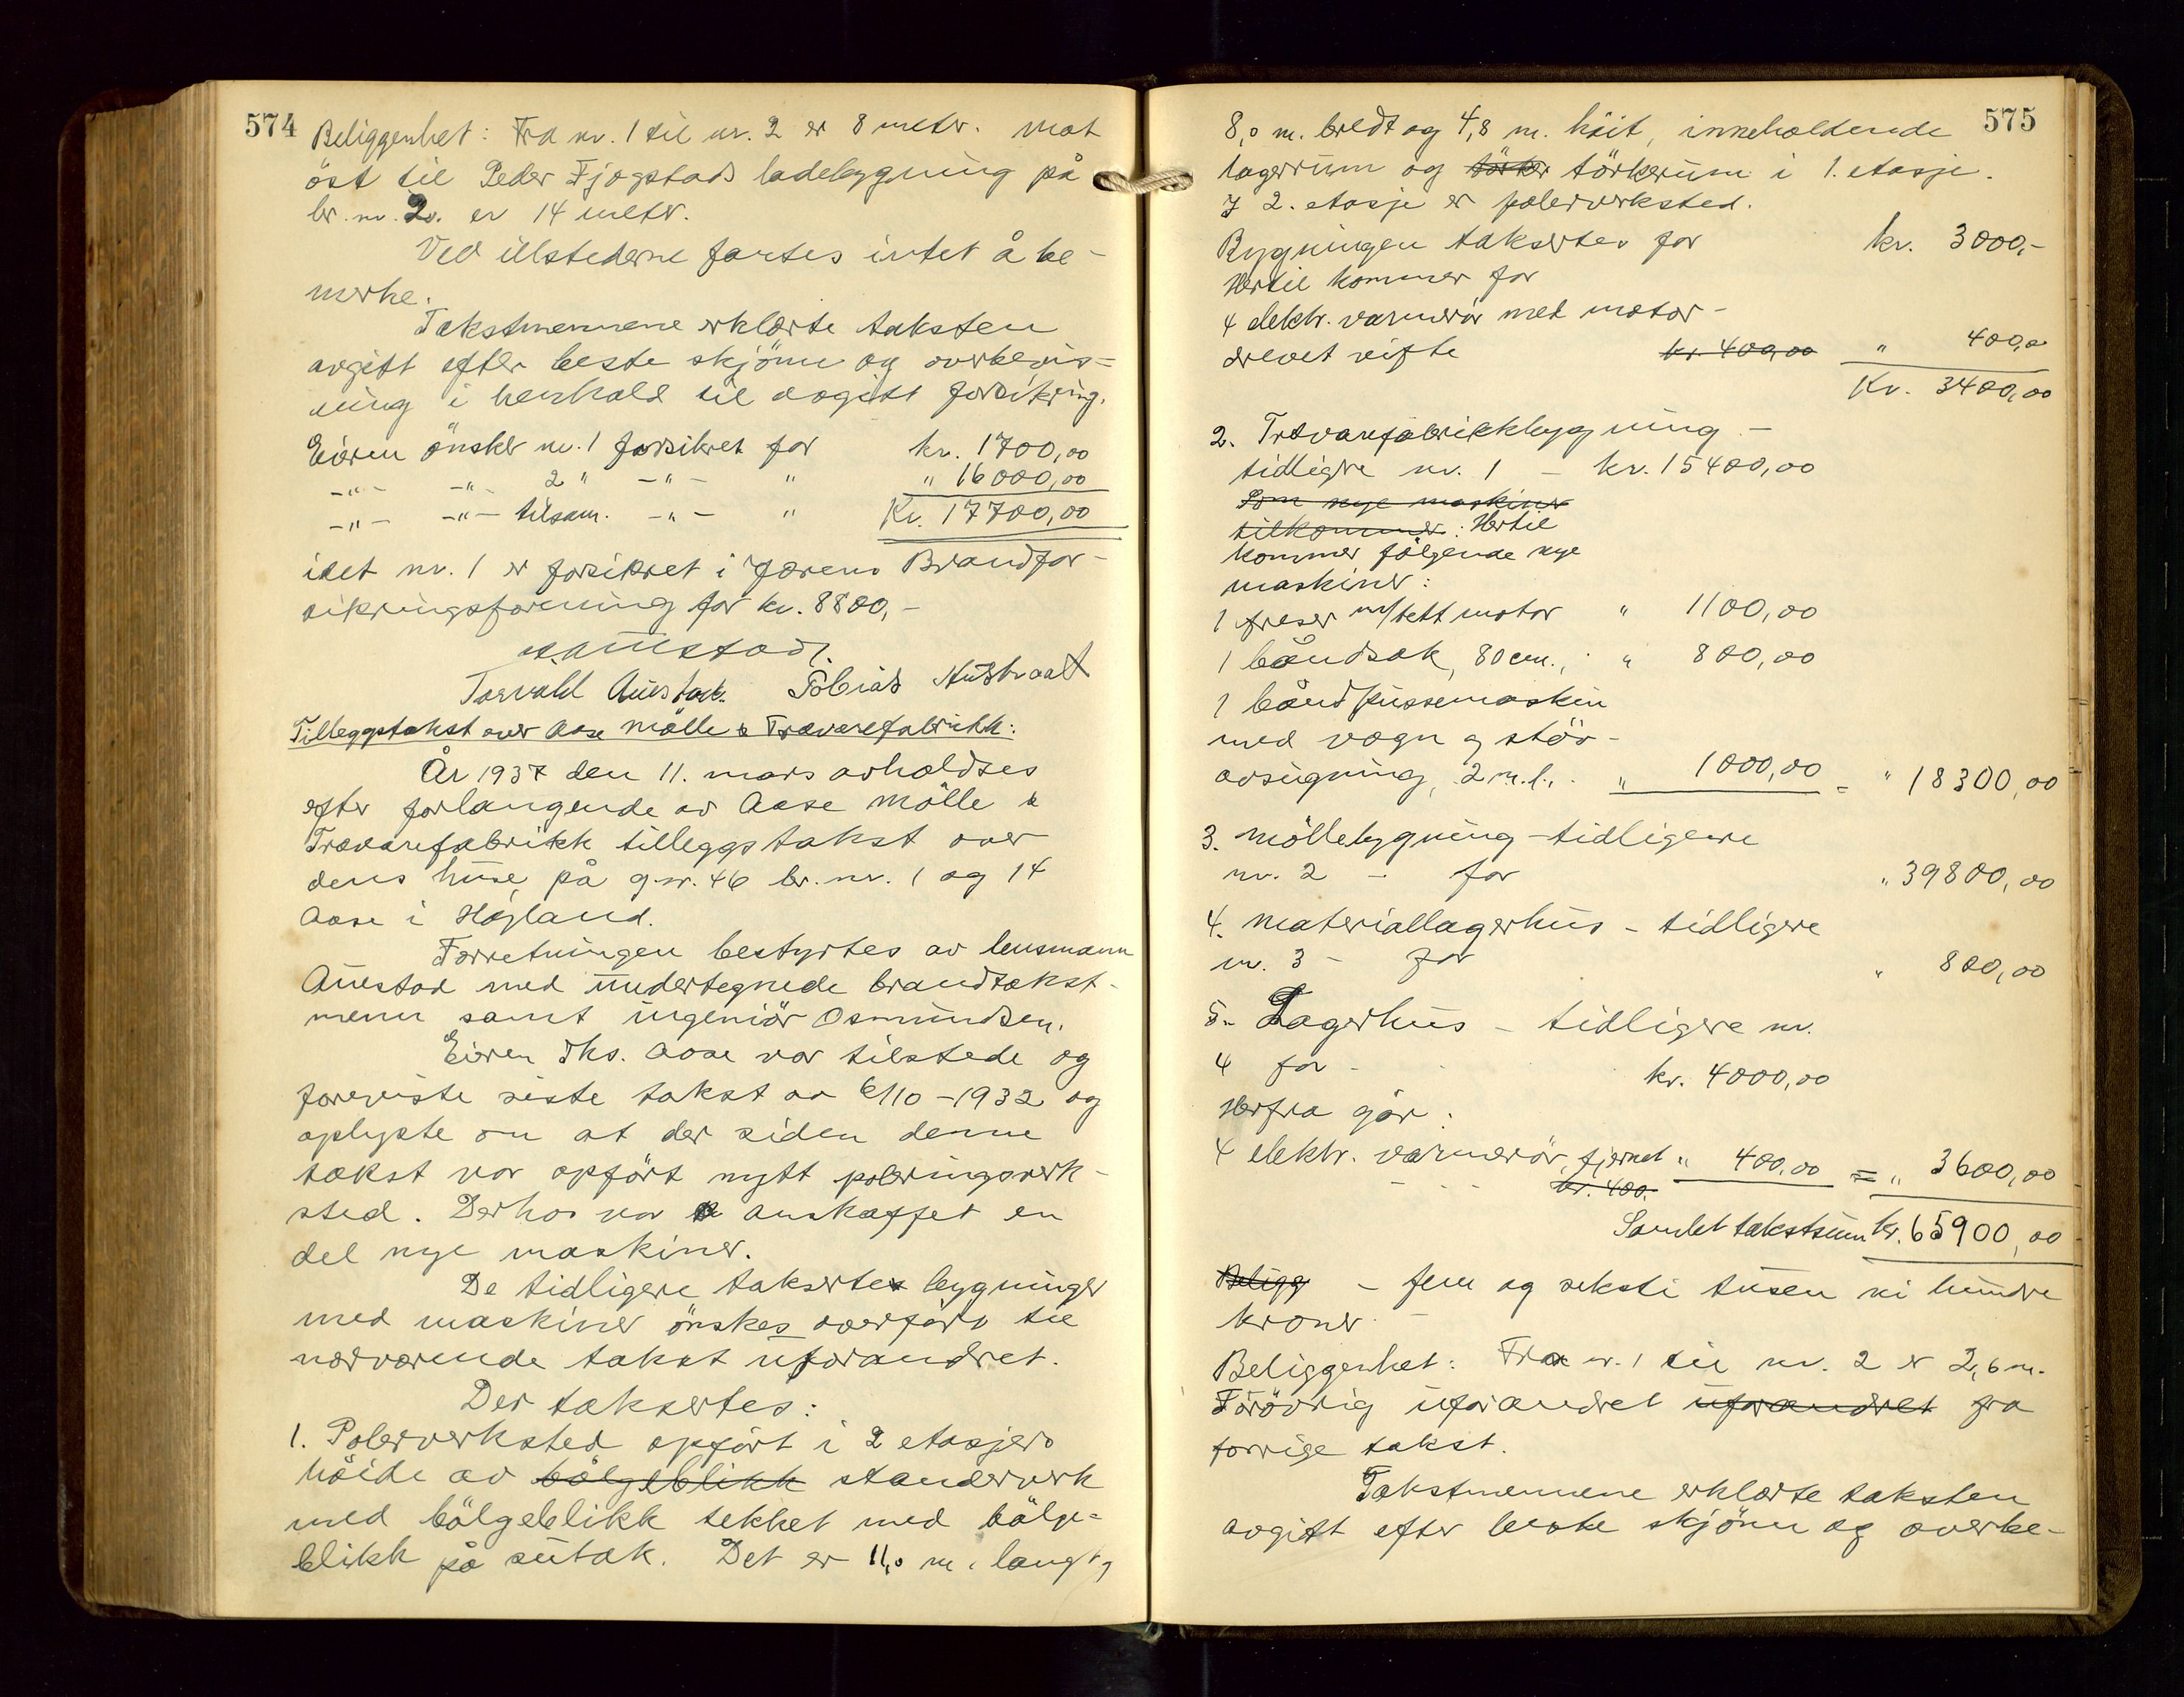 574
Beliggenhet: Fra nr. 1 til nr. 2 er 8 metr. Mot
öst til Peder Fjogstads ladebygning på
br. nr. 2. er 14 metr.
Ved ildstederne fantes intet å be-
merke.
Takstmennene erklærte taksten
avgitt efter beste skjönn og overbevis-
ning i henhold til avgitt forsikring.
Eieren önsker nr. 1 forsikret for kr. 1700,00
-"- -"- 2 " -"- " " 16000,00
-"- -"- tilsam. -"- " Kr. 17700,00
idet nr. 1 er forsikret i Jærens Brandfor-
sikringsforening for kr. 8800,-
Torvald Auestad. Tobias Austraat
Tilleggstakst over Aase Mölle & Trævarefabrikk:
År 1937 den 11. mars avholdtes
efter forlangende av Aase Mölle &
Trævarefabrikk tilleggstakst over
dens huse på g.nr. 46 br. nr. 1 og 14
Aase i Höyland.
Forretningen bestyrtes av lensmann
Auestad med undertegnede brandtakst-
menn samt ingeniör Osmundsen.
Eieren Ths. Aase var tilstede og
foreviste siste takst av 6/10-1932 og
oplyste om at der siden denne
takst var opfört nytt poleringsverk-
sted. Derhos var anskaffet en
del nye maskiner.
De tidligere takserte bygninger
med maskiner önskes overfört til
nærværende takst uforandret.
Der taksertes:
1. Polerverksted opfört i 2 etasjers
höide av bölgeblikk standerverk
med bölgeblikk tekket med bölge-
blikk på sutak. Det er 11,0 m. langt,
575
8,0 m. bredt og 4,8 m. höit, inneholdende
lagerrum og törker törkerum i 1. etasje.
I 2. etasje er polerverksted.
Bygningen taksertes for kr. 3000,-
Hertil kommer for
4 elektr. varmerör med motor-
drevet vifte kr. 400,00 " 400,00
Kr. 3400,00
2. Trævarefabrikkbygning -
tidligere nr. 1 - kr. 15400,00
Som nye maskiner
tilkommer: Hertil
kommer fölgende nye
maskiner:
1 freser m/tett motor " 1100,00
1 båndsak, 80 cm., " 800,00
1 båndpussemaskin
med vogn og stöv-
avsugning, 2 m. l., " 1000,00 = " 18300,00
3. Möllebygning - tidligere
nr. 2 - for " 39800,00
4. Materiallagerhus - tidligere
nr. 3 - for " 800,00
5. Lagerhus - tidligere nr.
4 for - kr. 4000,00
Herfra går:
4 elektr. varmerör, fjernet " 400,00 = " 3600,00
kr. 400.
Samlet takstsum kr. 65900,00
Beligg - fem og seksti tusen ni hundre
kroner -
Beliggenhet: Fra nr. 1 til nr. 2 er 2,6 m.
Forövrig uforandret uforandret fra
forrige takst.
Takstmennene erklærte taksten
avgitt efter beste skjönn og overbe-